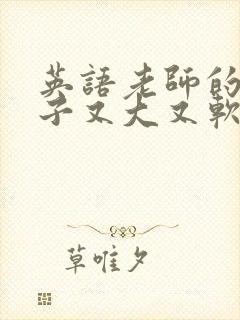 英語老師的
子又大又軟
草唯夕